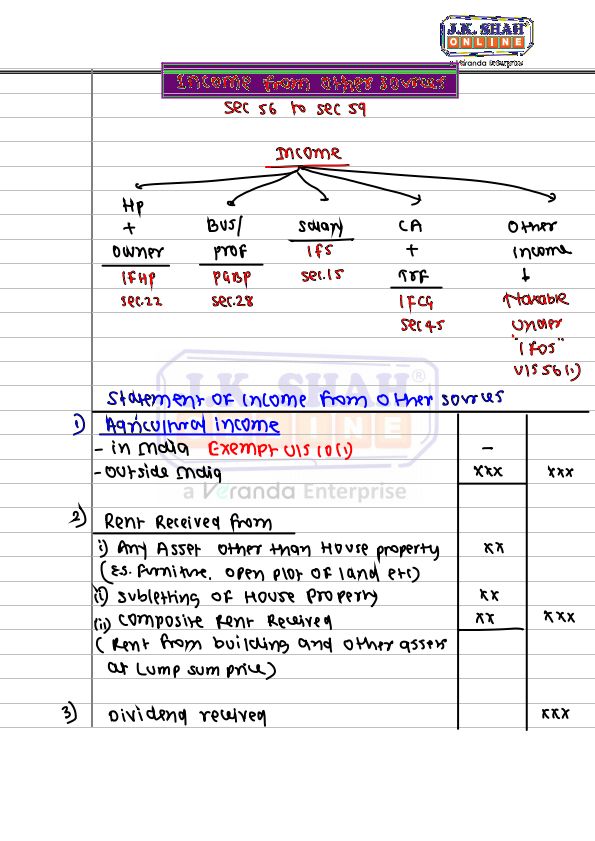 J.K. SHAH
ONLINE
a Veranda Enterprise
Income from other sources
Sec 56 to Sec 59
Income
HP + owner
IFHP
Sec.22
Bus/ Prof
PGBP
Sec.28
Salary
IFS
Sec.15
CA + TRF
IFCG
Sec 45
Other Income
↓
Taxable
Under
"IFOS"
U/S 56(1)
J.K. SHAH®
ONLINE
a Veranda Enterprise
Statement of income from other sources
1) Agricultural income
- in India Exempt U/S 10(1) -
- outside India xxx xxx
2) Rent Received from
i) Any Asset other than House property xx
(Eg. furniture, open plot of land etc)
ii) Subletting of House Property xx
(iii) composite Rent Received xx xxx
(Rent from building and other assets
at Lump sum price)
3) Dividend received xxx